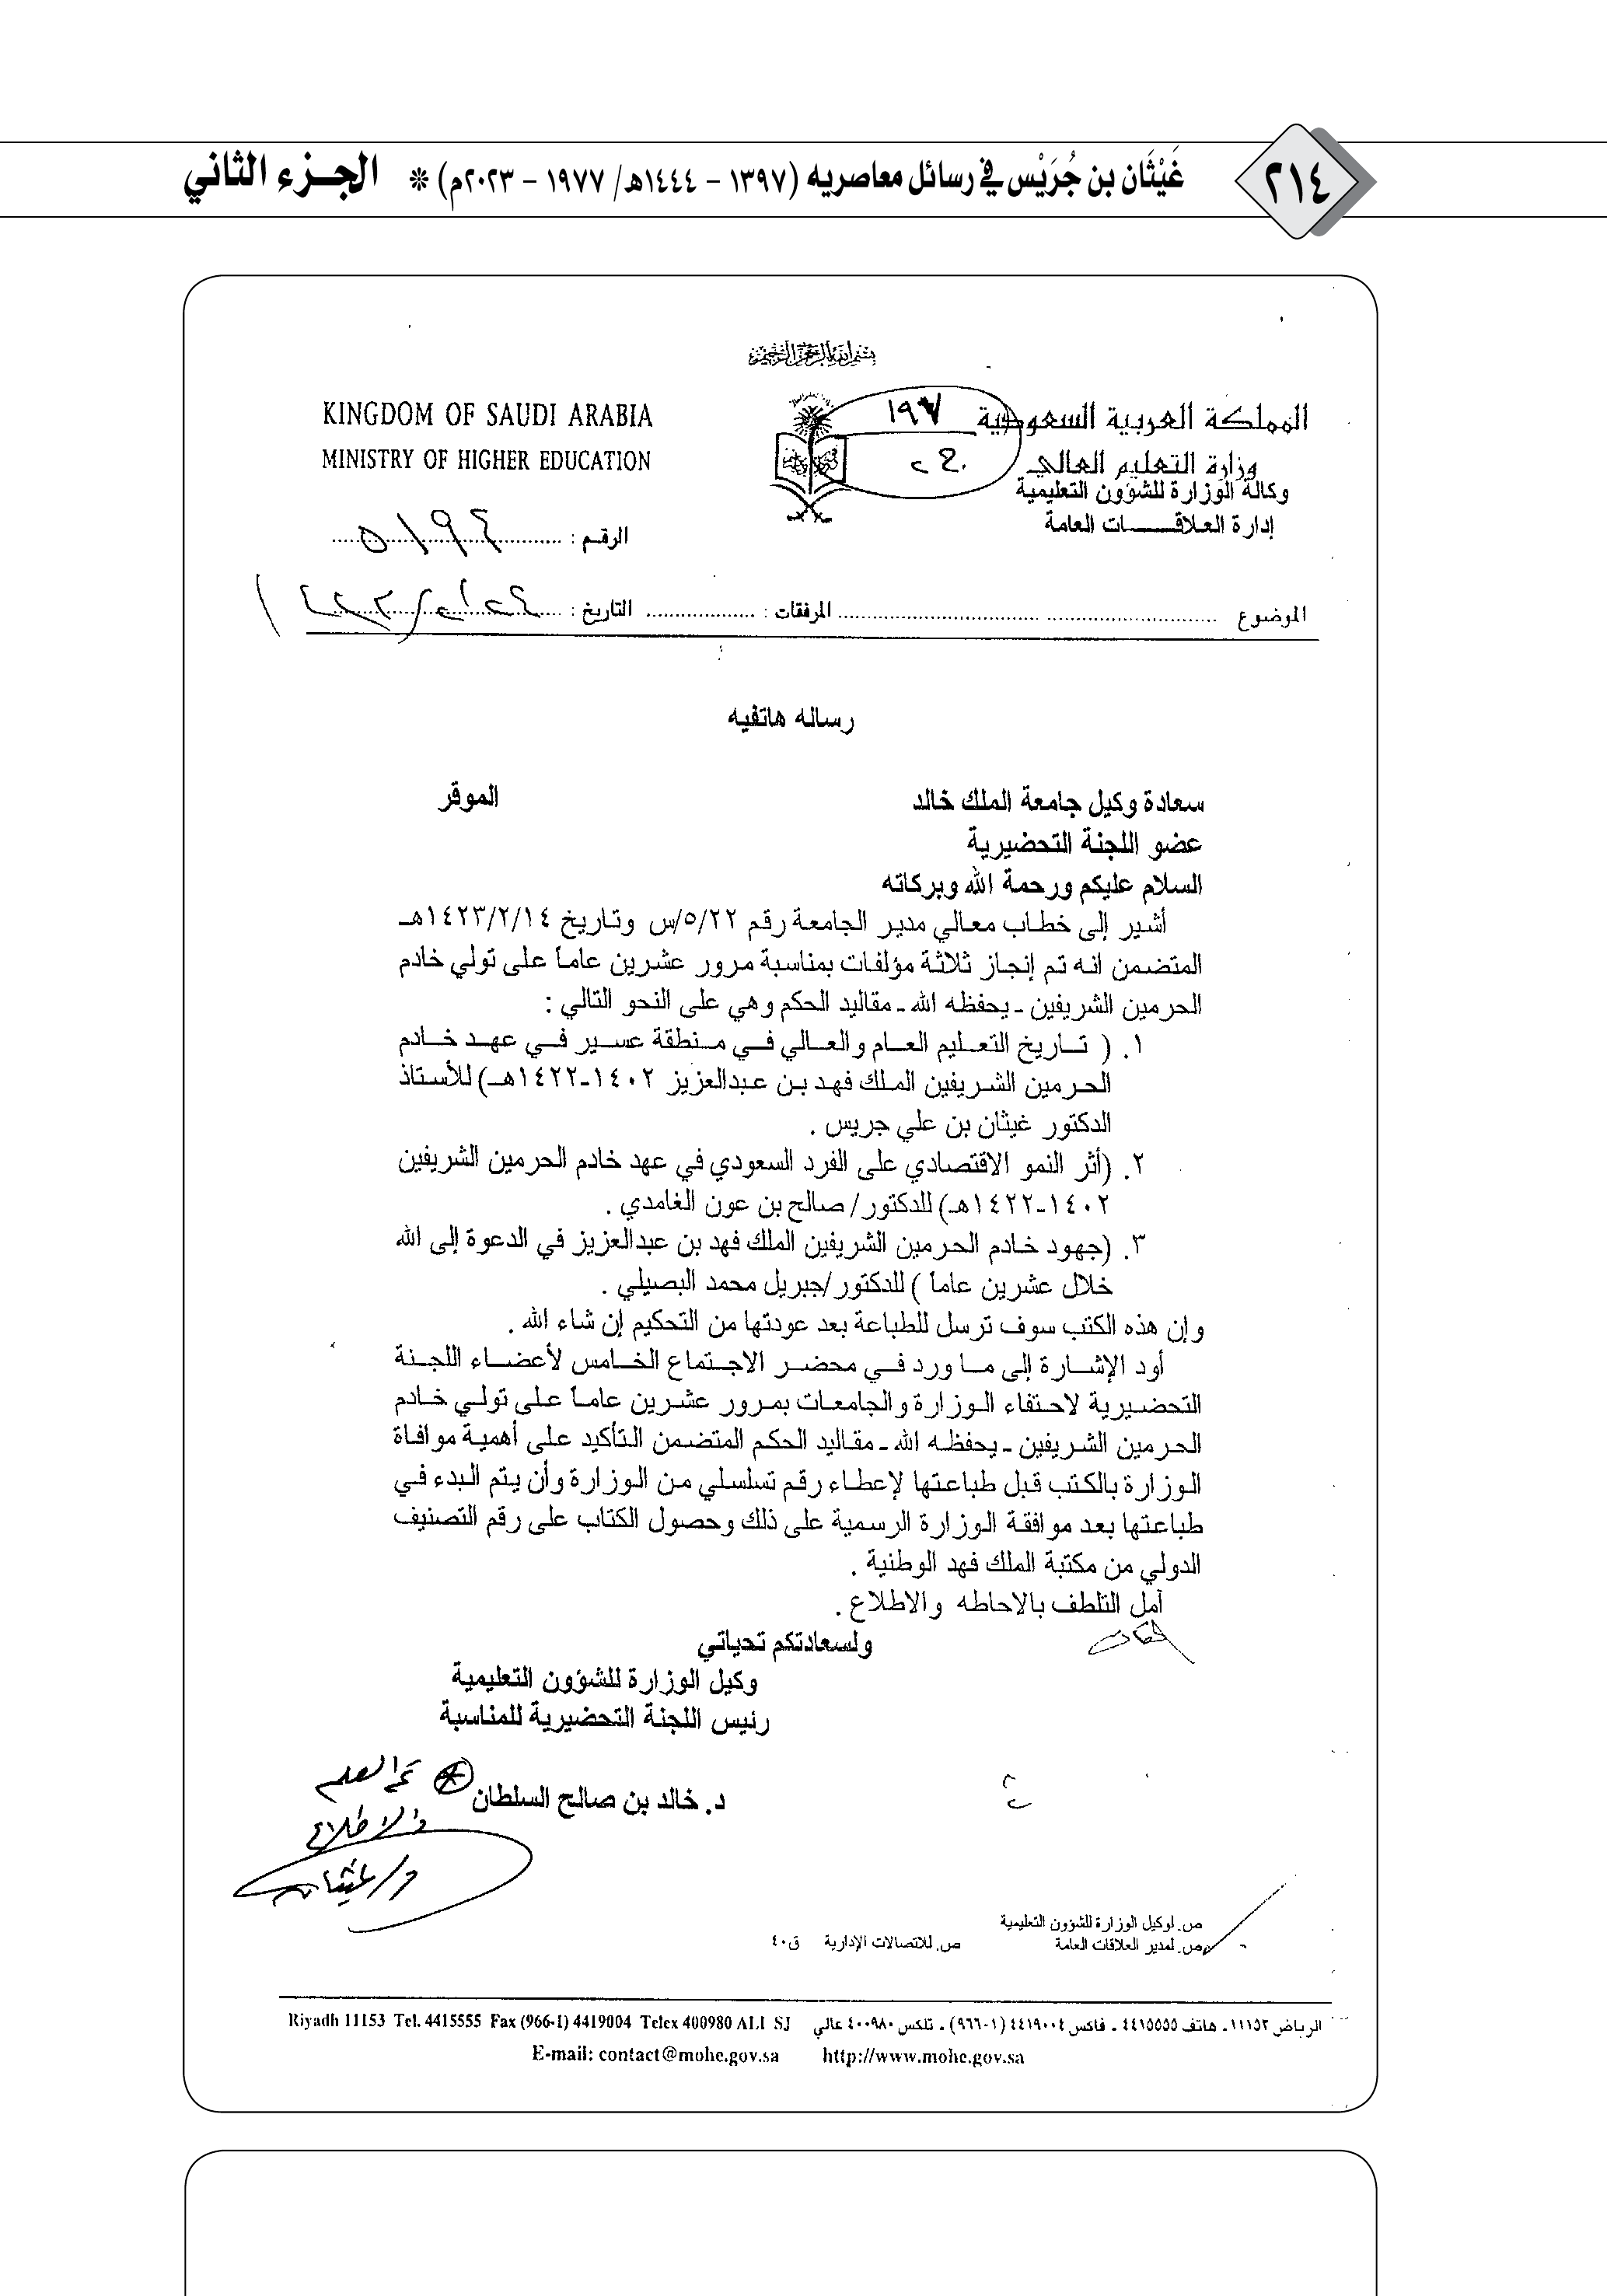 ٢١٤
غَيْثَان بن جُرَيْس في رسائل معاصريه (١٣٩٧ - ١٤٤٤هـ/ ١٩٧٧ - ٢٠٢٣م) * الجزء الثاني
بسم الله الرحمن الرحيم
المملكة العربية السعودية
وزارة التعليم العالي
وكالة الوزارة للشؤون التعليمية
إدارة العلاقات العامة
KINGDOM OF SAUDI ARABIA
MINISTRY OF HIGHER EDUCATION
الرقم : ٥١٩٤
الموضوع المرفقات : التاريخ :
رساله هاتفيه
سعادة وكيل جامعة الملك خالد الموقر
عضو اللجنة التحضيرية
السلام عليكم ورحمة الله وبركاته
أشير إلى خطاب معالي مدير الجامعة رقم ٥/٢٢/س وتاريخ ١٤٢٣/٢/١٤هـ
المتضمن انه تم إنجاز ثلاثة مؤلفات بمناسبة مرور عشرين عاماً على تولي خادم
الحرمين الشريفين ـ يحفظه الله ـ مقاليد الحكم وهي على النحو التالي :
١. ( تاريخ التعليم العام والعالي في منطقة عسير في عهد خادم
الحرمين الشريفين الملك فهد بن عبدالعزيز ١٤٠٢-١٤٢٢هـ) للأستاذ
الدكتور غيثان بن علي جريس .
٢. (أثر النمو الاقتصادي على الفرد السعودي في عهد خادم الحرمين الشريفين
١٤٠٢-١٤٢٢هـ) للدكتور/ صالح بن عون الغامدي .
٣. (جهود خادم الحرمين الشريفين الملك فهد بن عبدالعزيز في الدعوة إلى الله
خلال عشرين عاماً ) للدكتور/جبريل محمد البصيلي .
وإن هذه الكتب سوف ترسل للطباعة بعد عودتها من التحكيم إن شاء الله .
أود الإشارة إلى ما ورد في محضر الاجتماع الخامس لأعضاء اللجنة
التحضيرية لاحتفاء الوزارة والجامعات بمرور عشرين عاماً على تولي خادم
الحرمين الشريفين ـ يحفظه الله ـ مقاليد الحكم المتضمن التأكيد على أهمية موافاة
الوزارة بالكتب قبل طباعتها لإعطاء رقم تسلسلي من الوزارة وأن يتم البدء في
طباعتها بعد موافقة الوزارة الرسمية على ذلك وحصول الكتاب على رقم التصنيف
الدولي من مكتبة الملك فهد الوطنية .
آمل التلطف بالاحاطه والاطلاع .
ولسعادتكم تحياتي
وكيل الوزارة للشؤون التعليمية
رئيس اللجنة التحضيرية للمناسبة
د. خالد بن صالح السلطان
تم العلم
والاطلاع
د/غيثان
ص. لوكيل الوزارة للشؤون التعليمية
ص. لمدير العلاقات العامة ص. للاتصالات الإدارية ق٤٠
الرياض ١١١٥٣ ـ هاتف ٤٤١٥٥٥٥ ـ فاكس ٤٤١٩٠٠٤ (١-٩٦٦) ـ تلكس ٤٠٠٩٨٠ عالي Riyadh 11153 Tel. 4415555 Fax (966-1) 4419004 Telex 400980 ALI SJ
E-mail: contact@mohe.gov.sa http://www.mohe.gov.sa